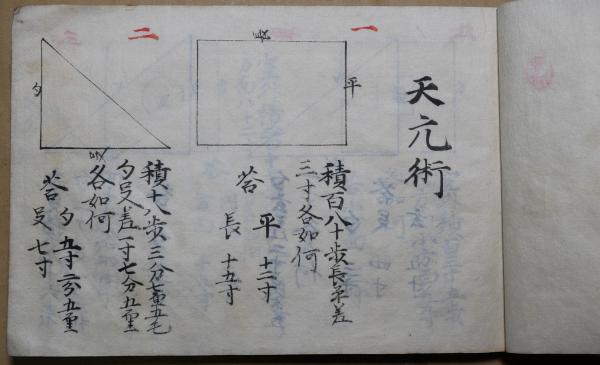 天元術
一
平
積百八十歩長平差
三寸各如何
荅 平 十二寸
長 十五寸
二
勺
積十八歩三分七厘五毛
勺殳差一寸七分五厘
各如何
荅 勺 五寸二分五厘
殳 七寸